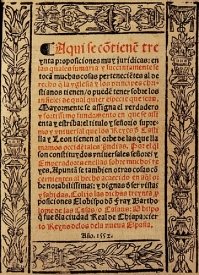 Aqui se cõtienẽ tre
ynta proposiciones muy juridicas: en
las quales sumaria y succintamente se
toca muchas cosas pertenecietes al de
recho q̃ la yglesia y los principes chri
stianos tienen / o puedẽ tener sobre los
infieles de qual quier especie que sean.
Mayormente se assigna el verdadero
y fortissimo fundamento en que se assi
enta y estriba el titulo y señorio supre
mo y vniuersal que los Reyes de Casti
lla y Leon tienen al orbe de las que lla
mamos occidentales Indias. Por el ql
son constituydos vniuersales señores y
Emperadores en ellas sobre muchos re
yes. Apuntã se tambien otras cosas cõ
cernientes al hecho acaecido en aql or
be notabilissimas: y dignas d ser vistas
y sabidas. Colijo las dichas treynta p
posiciones El obispo dõ fray Bartho
lome de las Casas / o Casaus: Obispo
q̃ fue dela ciudad Real de Chiapa: cier
to Reyno delos dela nueua España.
Año. 1552.